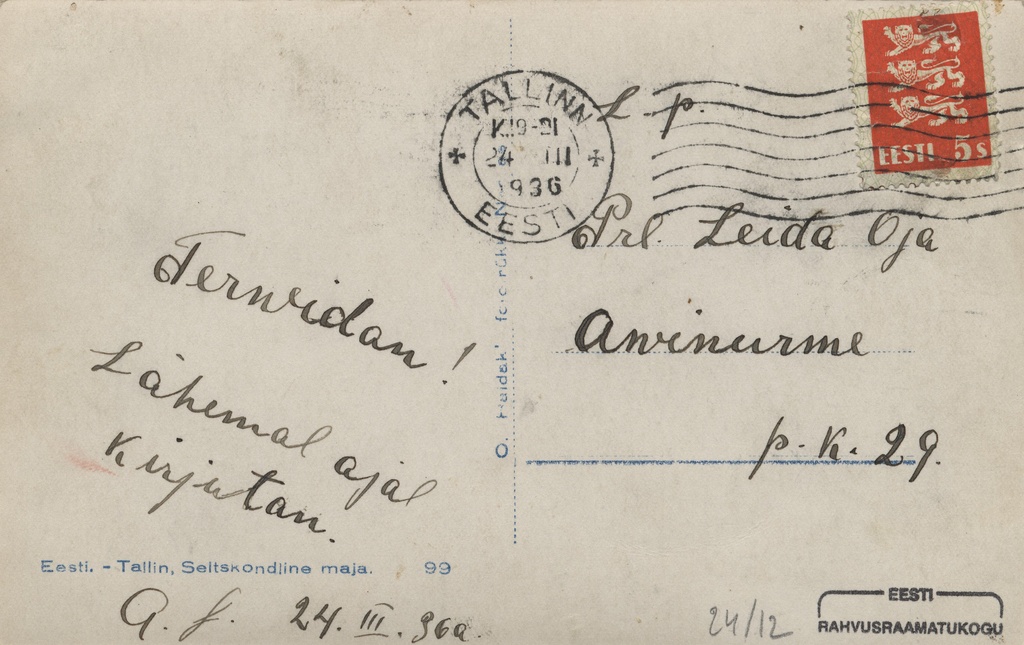 Terwidan!
Lähemal ajal
kirjutan.
Eesti. - Tallin, Seltskondline maja. 99
A. J. 24. III. 36a.
TALLINN
K19-21
24 III
1936
EESTI
EESTI 5 s
L. p.
Prl. Leida Oja
Awinurme
p. k. 29.
24/12
EESTI
RAHVUSRAAMATUKOGU